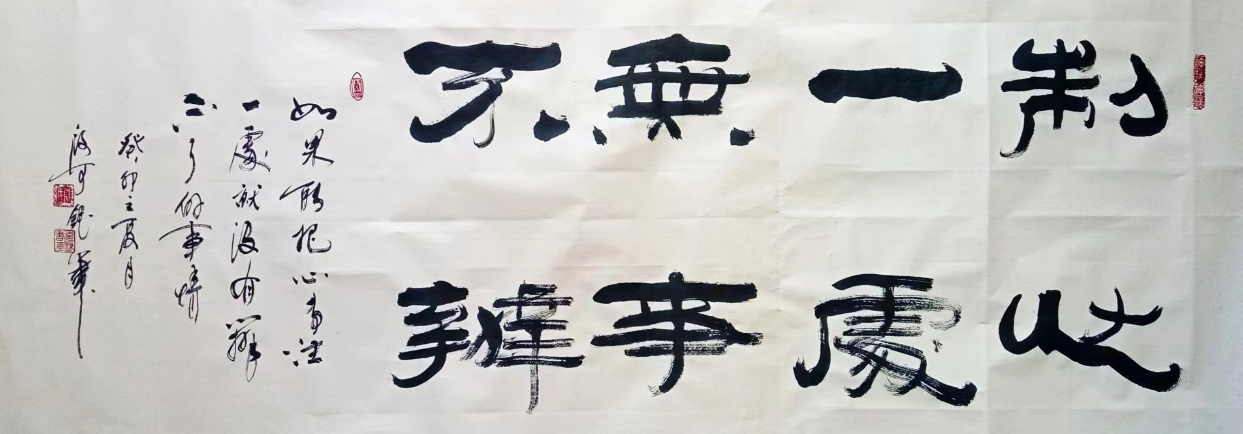 制心
一處
無事
不辦
如果能把心专注
一處就没有辦
不了的事情
癸卯之夏月